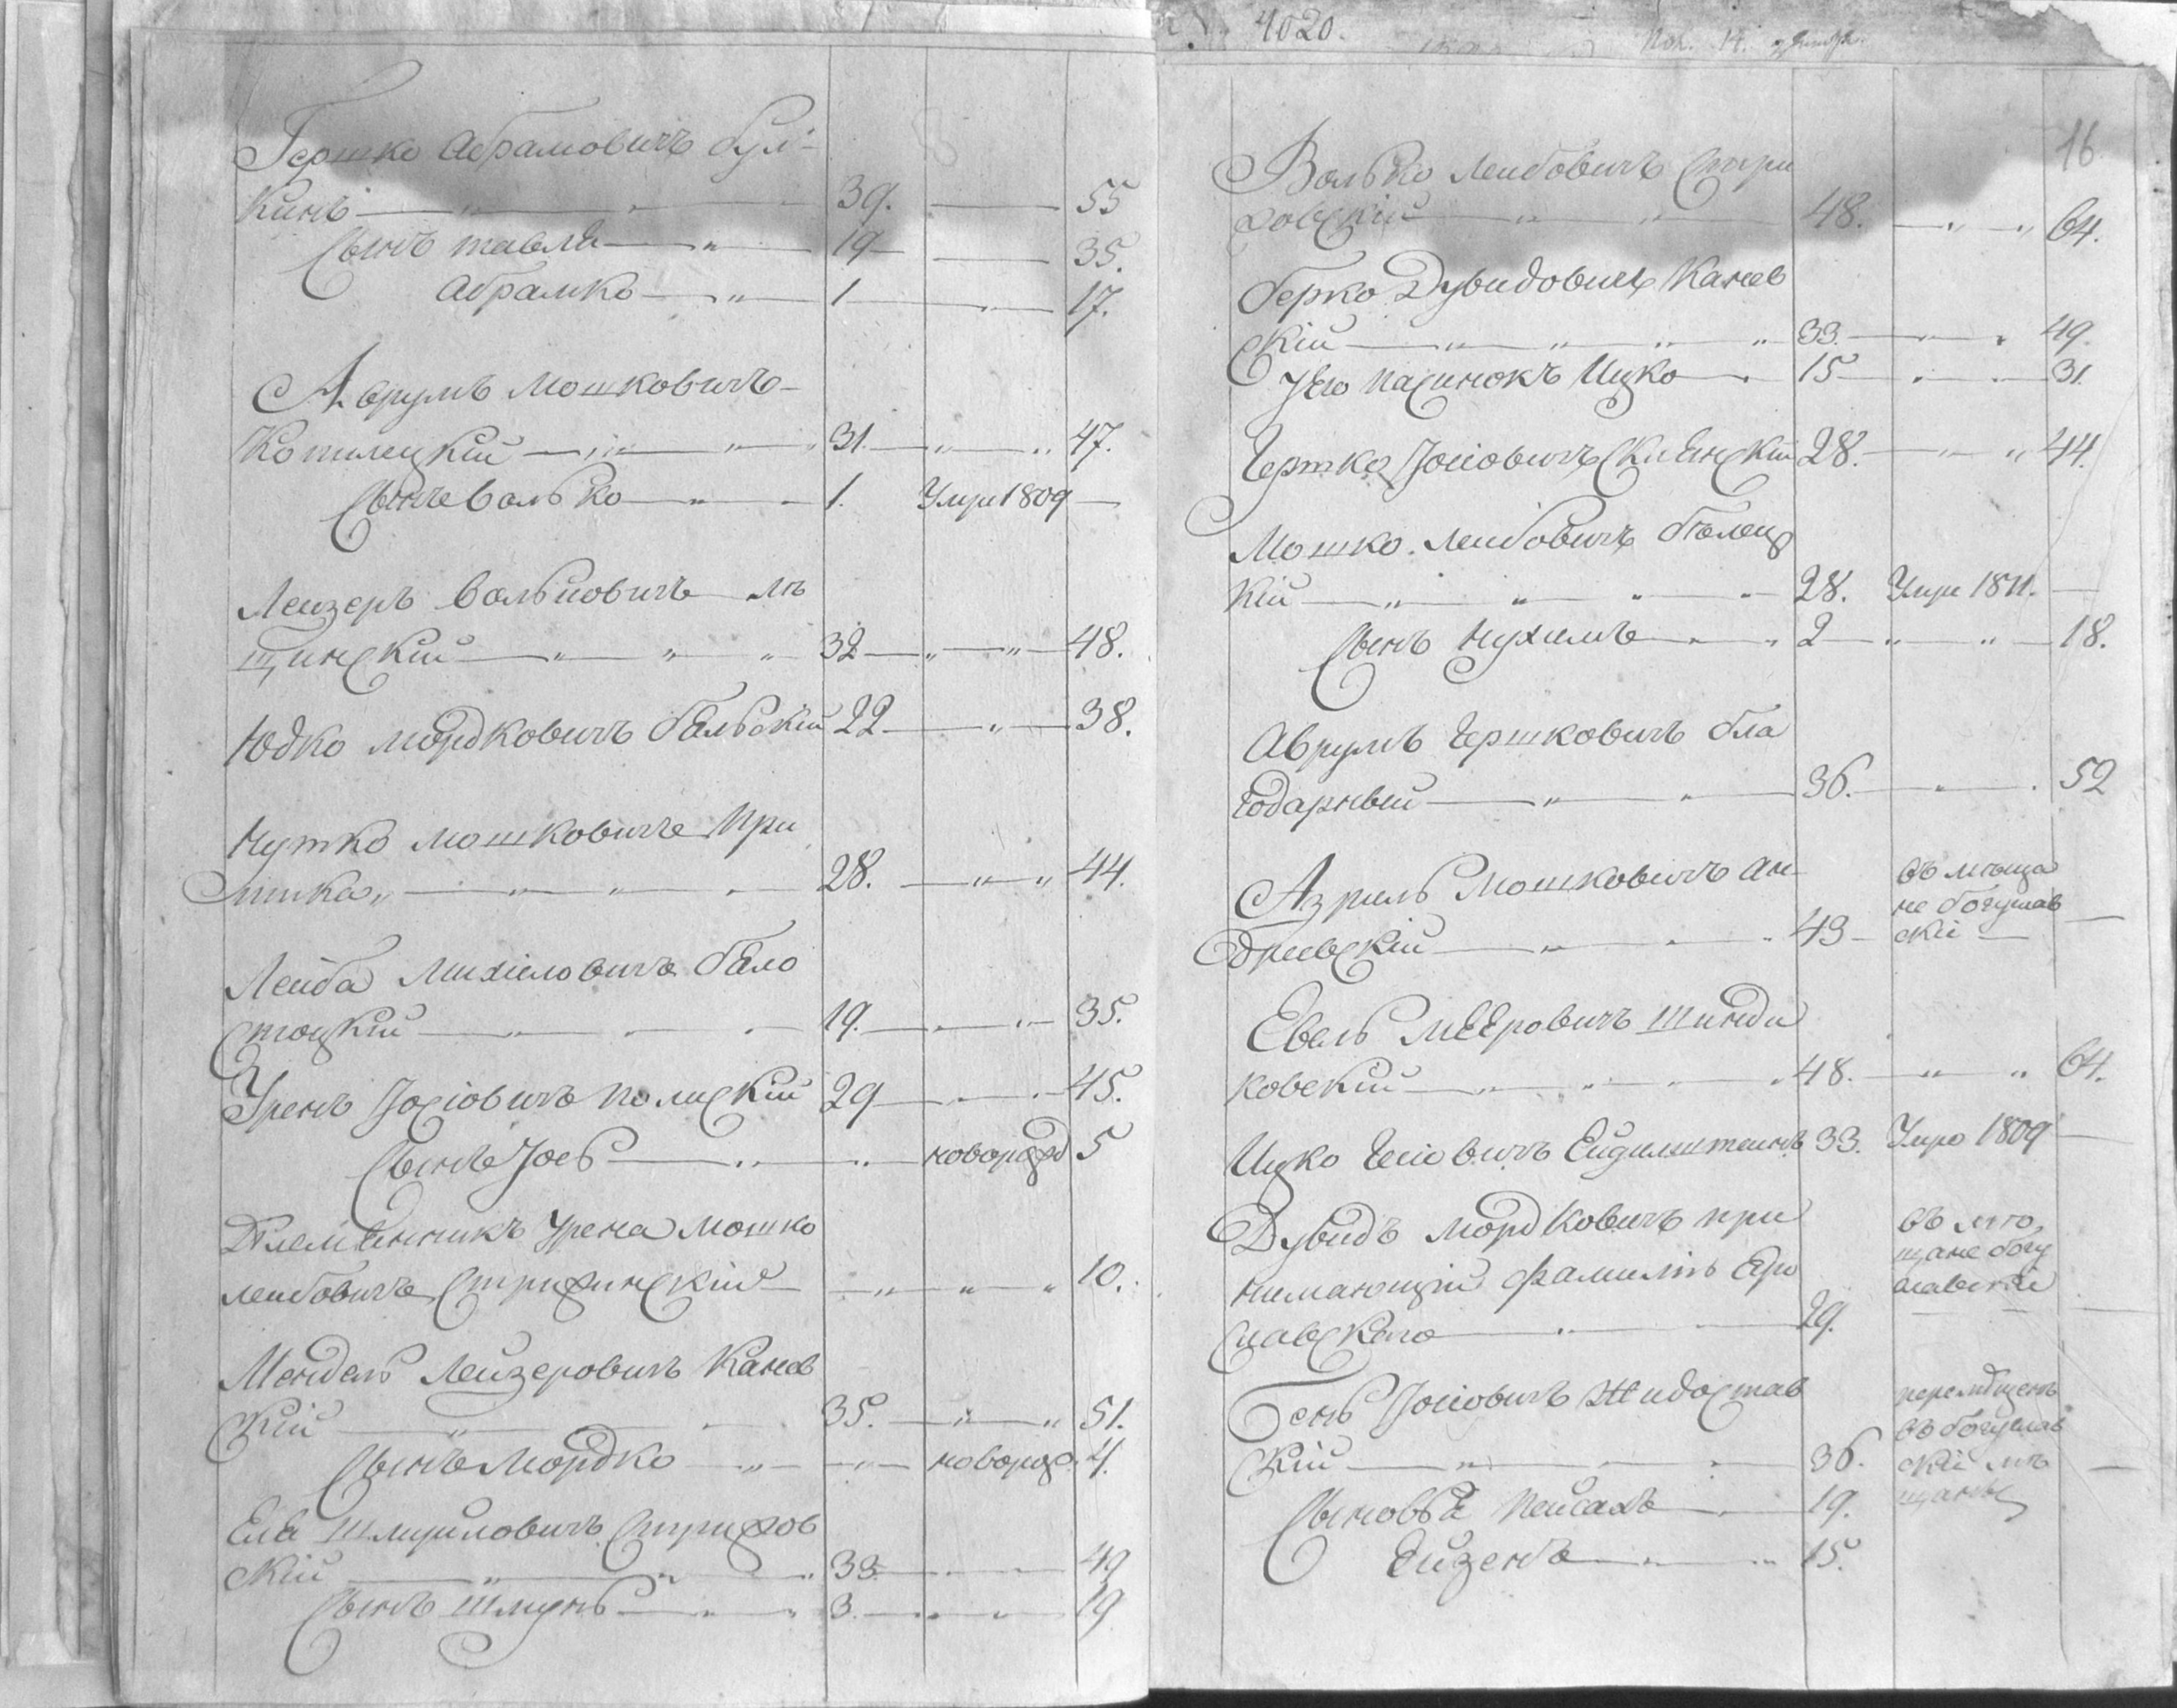 Гершко Абрамовичъ Бул-
кинъ 39. 55
Сынъ тавля 19 35.
Абрамко 1 17.
Аврумъ Мошковичъ
Котлецкій 31. 47.
Сынъ Волько 1. Умре 1809
Лейзеръ Вольковичъ Лѣ
щинскій 32 48.
Юдко Мордковичъ Бѣльскій 22 38.
Нутко Мошковичъ При
28. 44.
Лейба Михіловичъ Бѣло
стоцкій 19. 35.
Уренъ Іосіовичъ полискій 29 45.
Сынъ Іось новорожд 5
Племѣнникъ Урена Мошко
Лейбовичъ Стрижинскій 10.
Мендель Лейзеровичъ Канев
скій 35. 51.
Сынъ Мордко новорож. 4.
Ела Шмуиловичъ Стрижов
скій 33. 49
Сынъ Шмунь 3. 19
4020.
16.
Волько Лейбовичъ Стри
жовскій 48. 64.
Берко Дувидовичъ Канев
скій 33. 49.
У его пасинокъ Ицко 15 31.
Гершко Іосіовичъ 28. 44.
Мошко Лейбовичъ Бѣлец
кій 28. Умре 1811.
Сынъ Нухимъ 2 18.
Аврумъ Гершковичъ Бла
годарный 36. 52
Азриль Мошковичъ Ан-
дриевскій 43 въ мѣща
не богуслав
скіе
Евель Мееровичъ Шинди
ковскій 48. 64.
Ицко Іосіовичъ Ейдилштейнъ 33. Умре 1809
Дувидъ Мордковичъ при
нимающій Фамилію Бро
славского 29.
въ мѣ
щане богу
славскіе
Бень Іосіовичъ Жидостав
скій 36.
перемѣщенъ
въ богуслав
скіе мѣ
щаны
Сыновья Пейсахъ 19.
Ейзенъ 15.